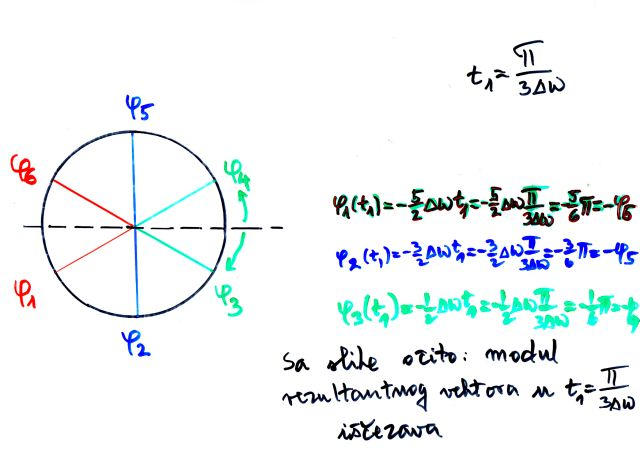 t₁ = π/3Δω
φ5
φ6 φ4
φ₁(t₁) = -5/2 Δω t₁ = -5/2 Δω π/3Δω = -5/6 π = -φ6
φ₂(t₁) = -3/2 Δω t₁ = -3/2 Δω π/3Δω = -3/6 π = -φ5
φ1 φ3
φ₃(t₁) = -1/2 Δω t₁ = -1/2 Δω π/3Δω = -1/6 π = -
φ2
Sa slike očito: modul
rezultantnog vektora u t₁ = π/3Δω
iščezava